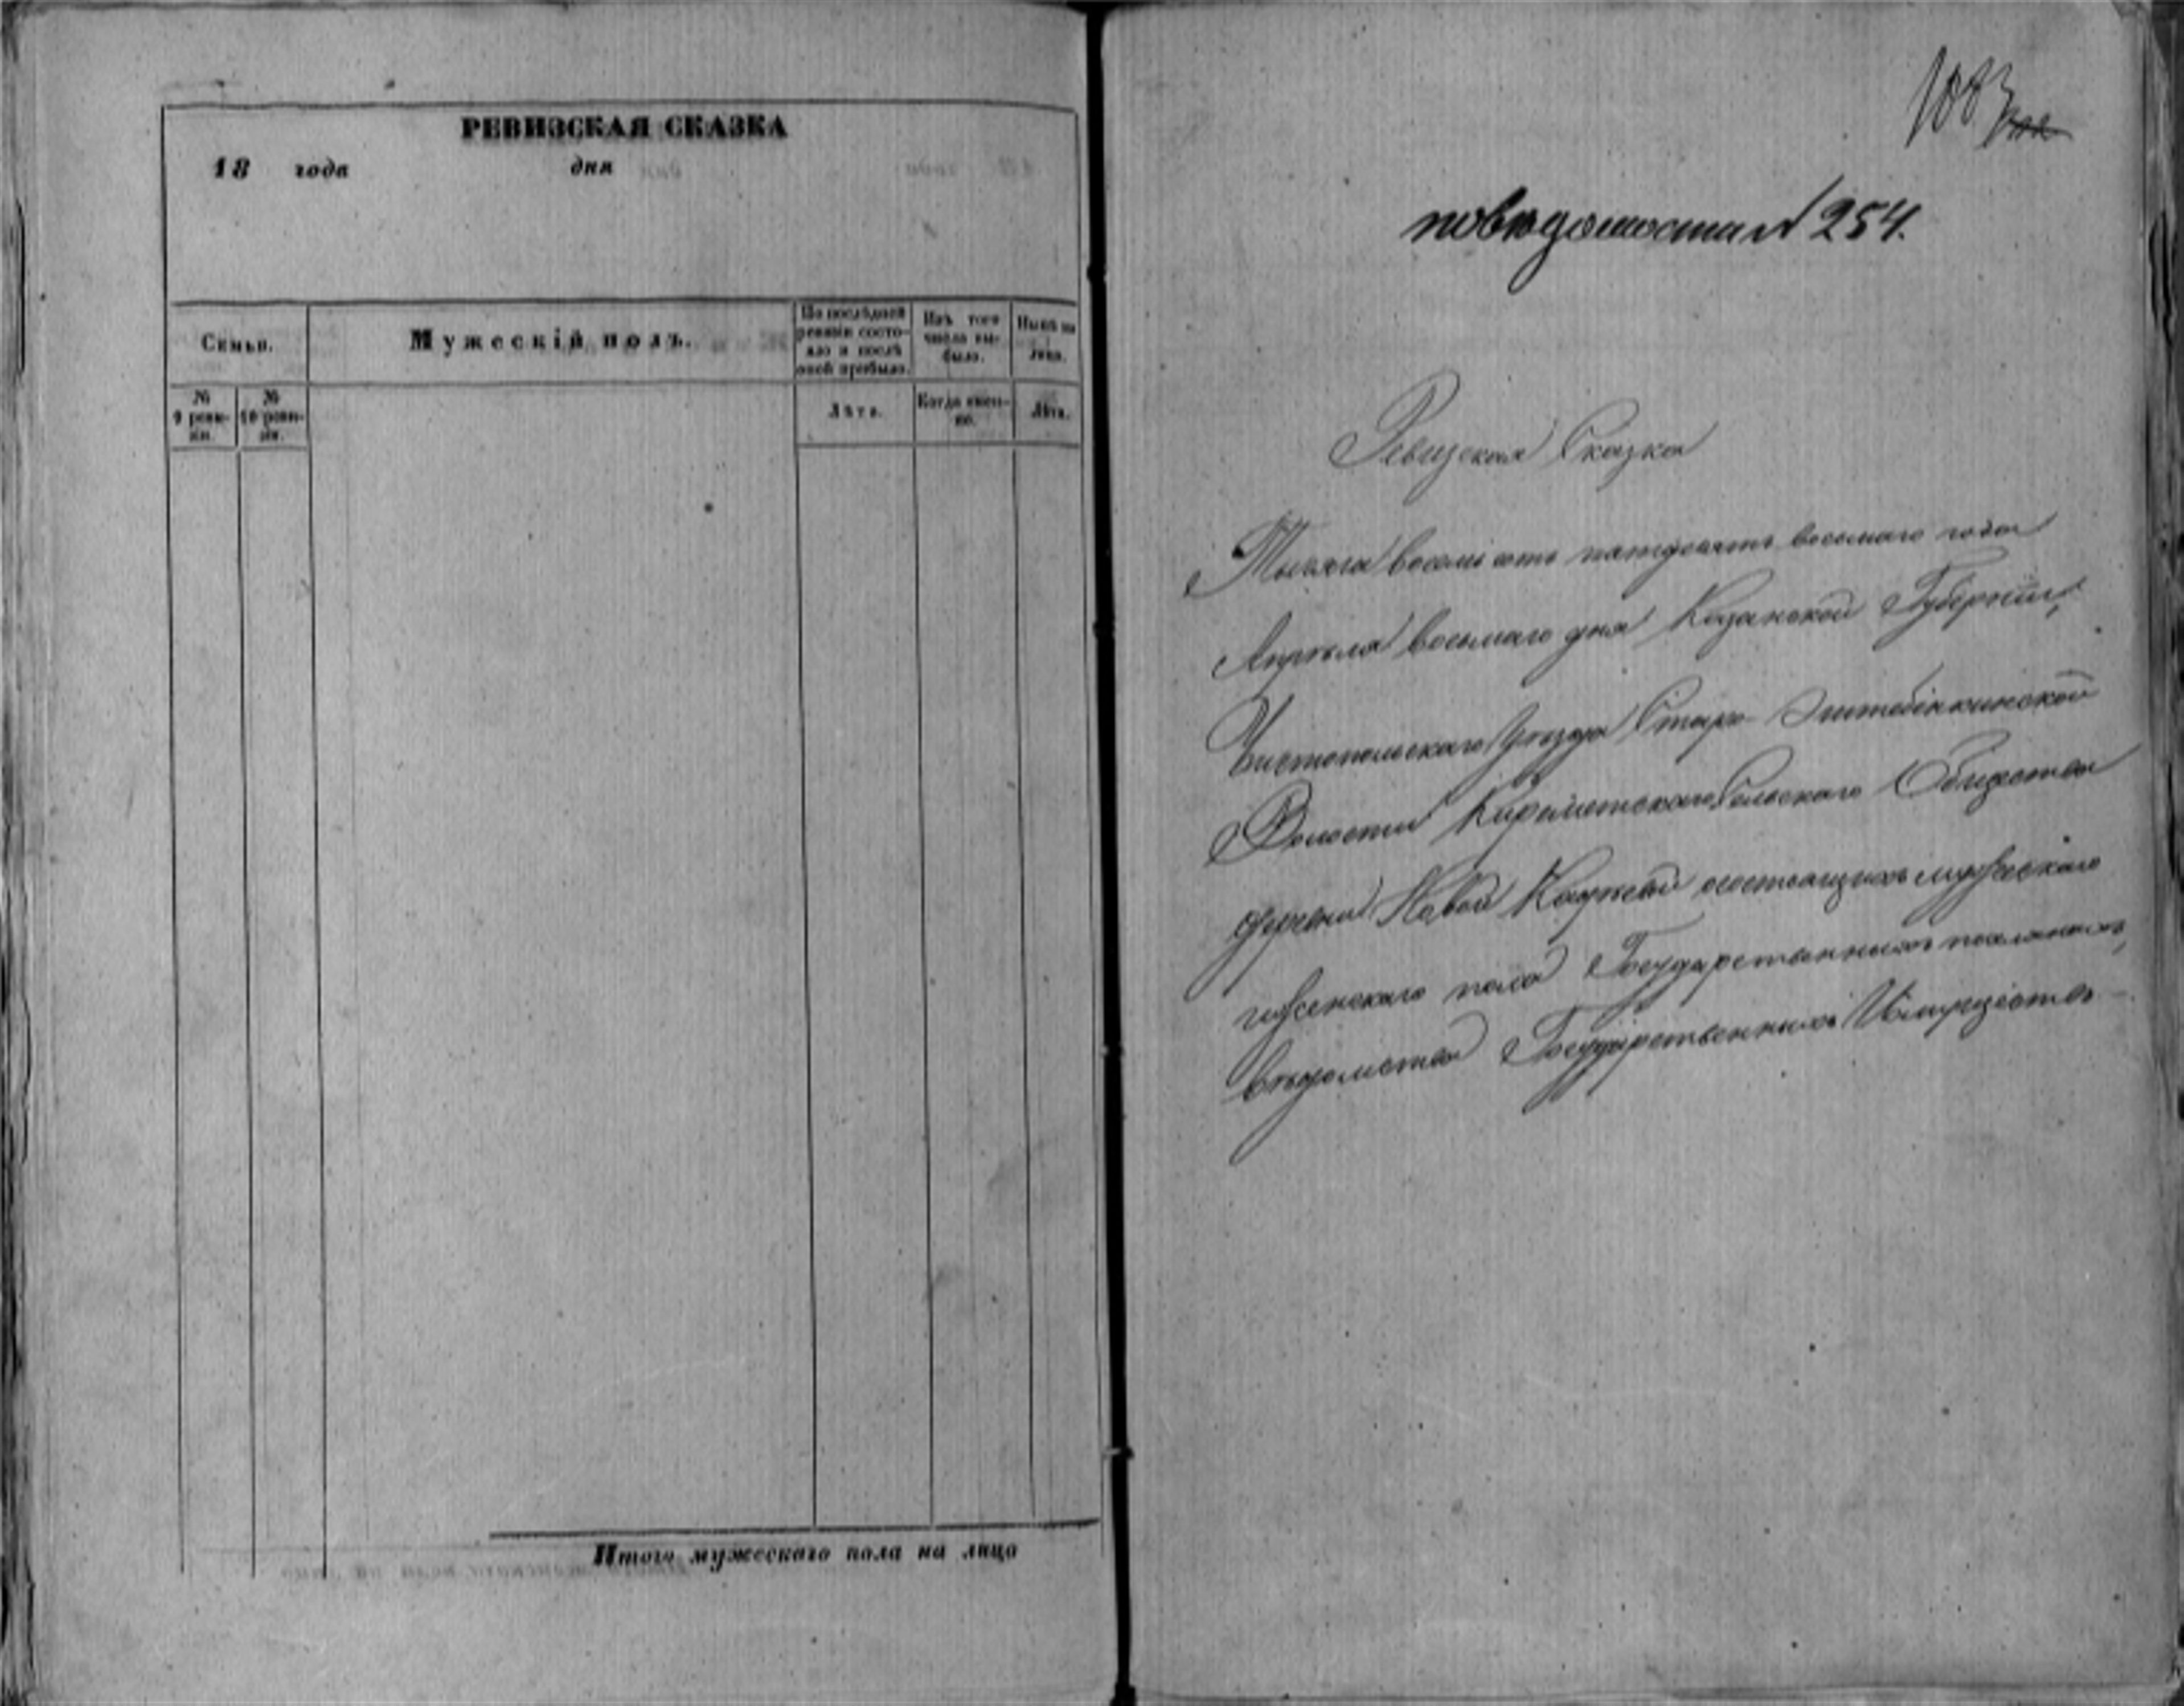 РЕВИЗСКАЯ СКАЗКА
18 года дня
Семьи.
Мужескій полъ.
По послѣдней ревизіи состояло и послѣ оной прибыло.
Изъ того числа выбыло.
Нынѣ на лицо.
№ 9 ревизіи.
№ 10 ревизіи.
Лѣта.
Когда именно.
Лѣта.
Итого мужескаго пола на лицо
1083
по вѣдомости № 254.
Ревизская Сказка
Тысяча восемь сотъ пятьдесятъ восьмаго года
Апрѣля восьмаго дня Казанской Губерніи,
Чистопольскаго Уѣзда Старо-
Волости Киреметскаго Сельскаго Общества
деревни Новой состоящихъ мужескаго
и женскаго пола Государственныхъ
вѣдомства Государственныхъ Имуществъ